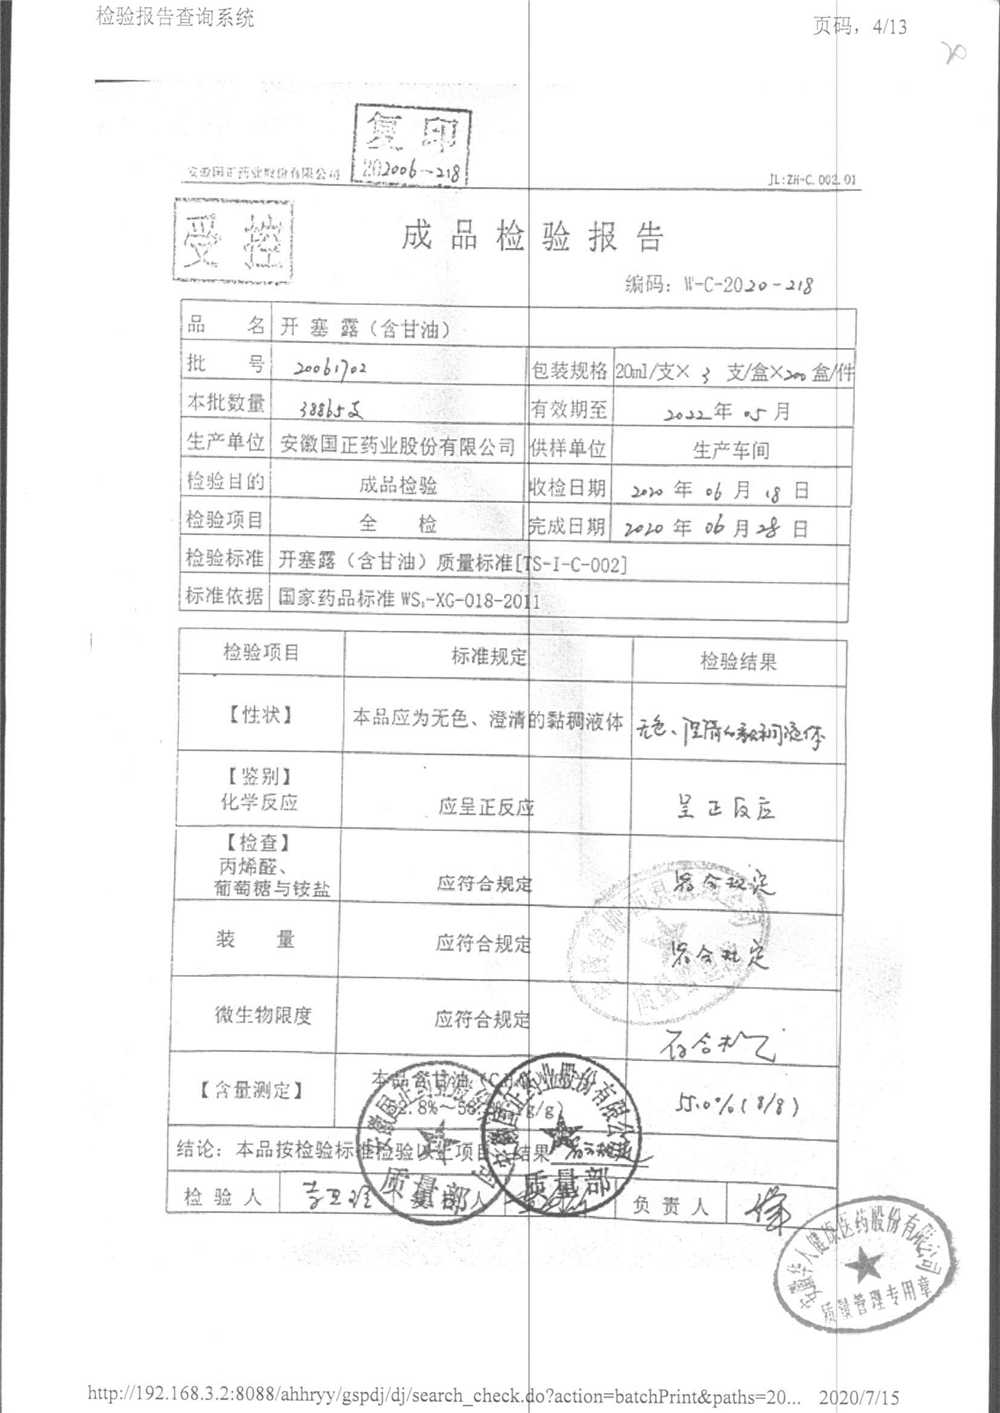 检验报告查询系统
页码，4/13
复印
202006-218
安徽国正药业股份有限公司
JL:ZH-C.002.01
受控
成品检验报告
编码：W-C-2020-218
品 名 开塞露（含甘油）
批 号 20061702 包装规格 20ml/支×3 支/盒×200盒/件
本批数量 38865支 有效期至 2022年05月
生产单位 安徽国正药业股份有限公司 供样单位 生产车间
检验目的 成品检验 收检日期 2020年06月18日
检验项目 全 检 完成日期 2020年06月28日
检验标准 开塞露（含甘油）质量标准[TS-I-C-002]
标准依据 国家药品标准 WS₁-XG-018-2011
检验项目 标准规定 检验结果
【性状】 本品应为无色、澄清的黏稠液体 无色、澄清的黏稠液体
【鉴别】
化学反应 应呈正反应 呈正反应
【检查】
丙烯醛、
葡萄糖与铵盐 应符合规定 符合规定
装 量 应符合规定 符合规定
微生物限度 应符合规定 符合规定
【含量测定】 本品含甘油 55.0%(g/g)
结论：本品按检验标准检验以上项目 结果 符合规定
检验人 负责人
安徽国正药业股份有限公司
质量部
安徽国正药业股份有限公司
质量部
安徽华人健康医药股份有限公司
质量管理专用章
http://192.168.3.2:8088/ahhryy/gspdj/dj/search_check.do?action=batchPrint&paths=20... 2020/7/15